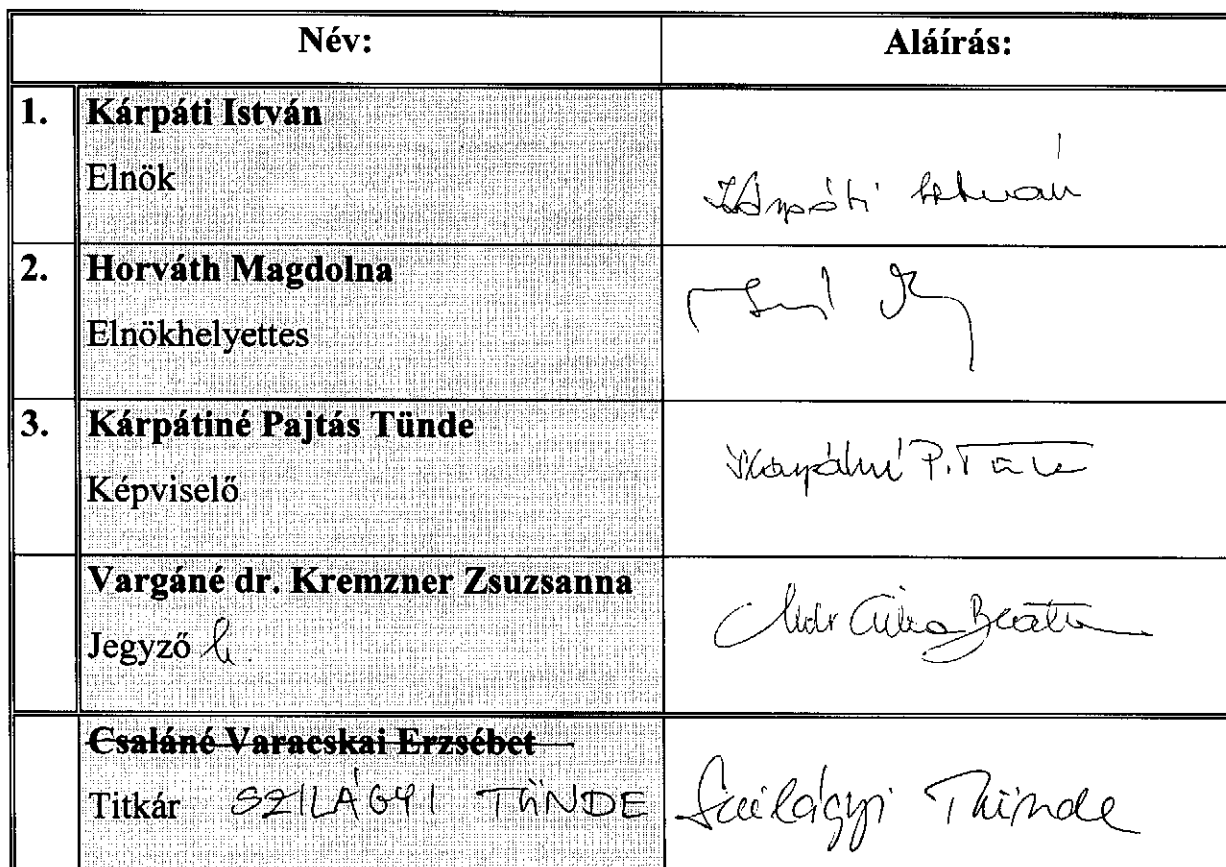 Név: Aláírás:
1. Kárpáti István
Elnök Kárpáti István
2. Horváth Magdolna
Elnökhelyettes
3. Kárpátiné Pajtás Tünde
Képviselő Kárpátiné P. Tünde
Vargáné dr. Kremzner Zsuzsanna
Jegyző h.
Csaláné Varacskai Erzsébet
Titkár SZILÁGYI TÜNDE Szilágyi Tünde